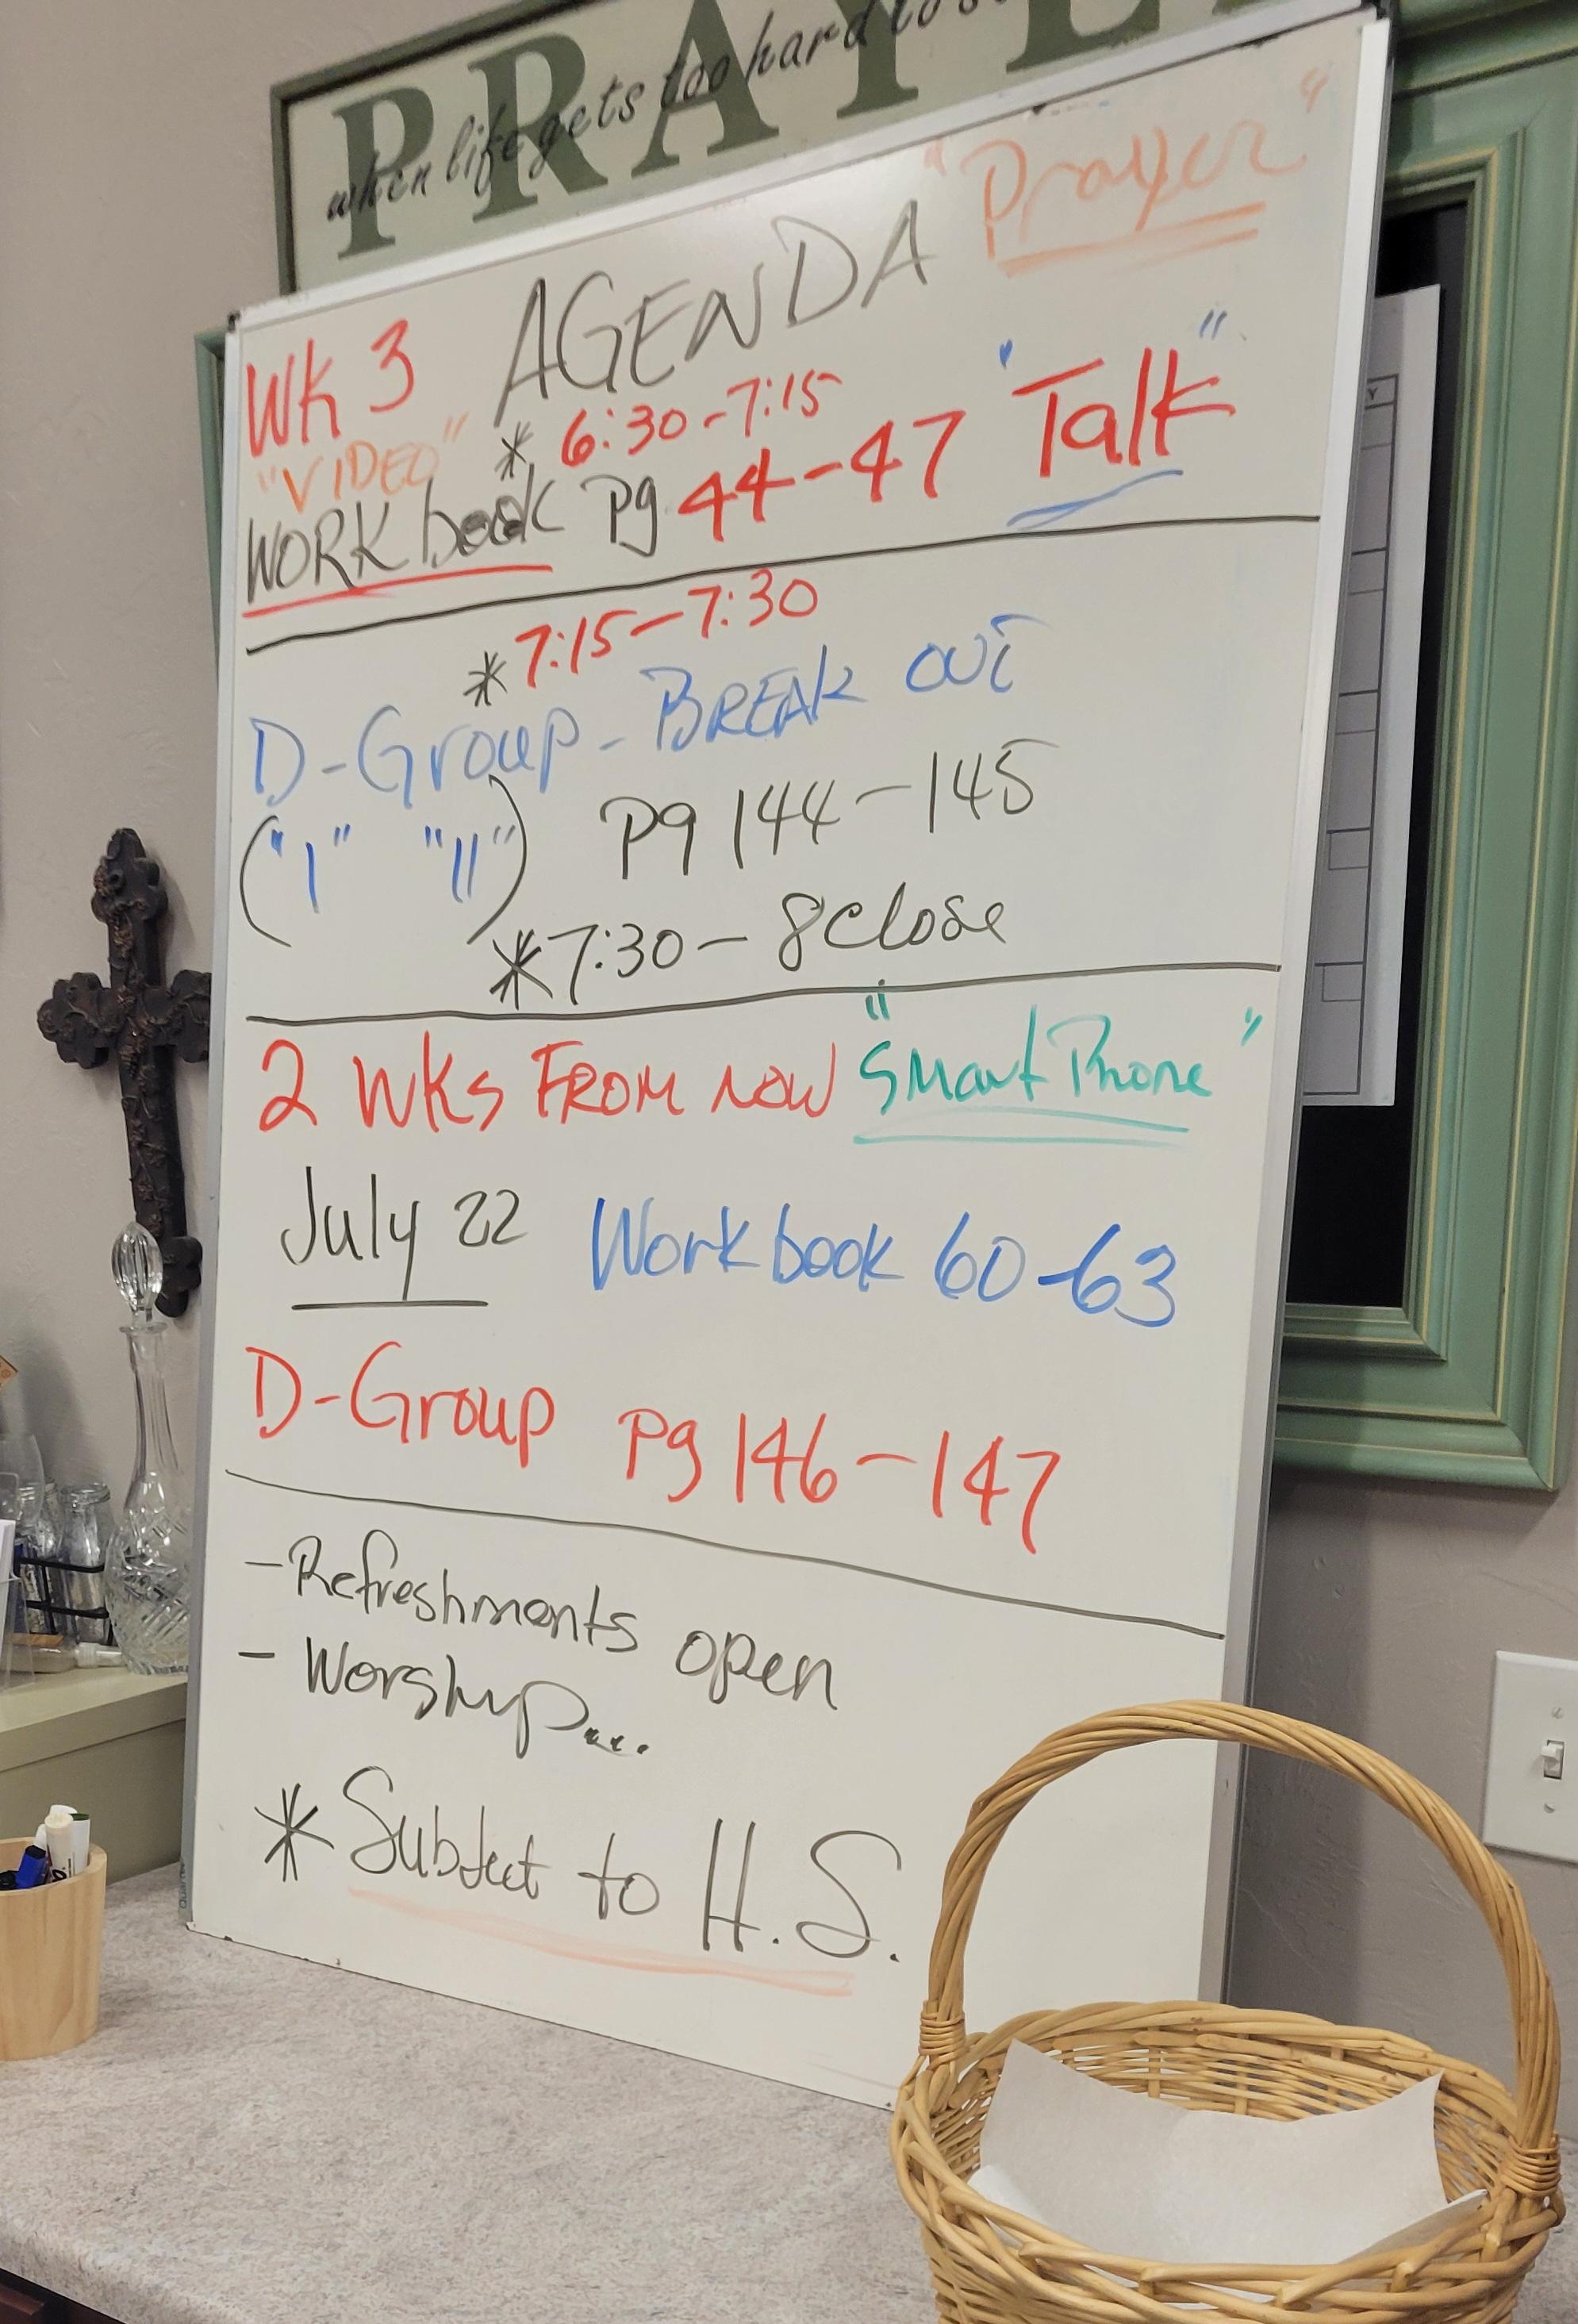 PRAYE
when life gets too hard to s
AGENDA "Prayer"
Wk 3
"VIDEO" * 6:30-7:15
WORKbook Pg 44-47 "Talk"
* 7:15-7:30
D-Group - BREAK OUT
("I" "II") Pg 144-145
* 7:30-8 Close
2 WKs FROM NOW "Smart Phone"
July 22 Workbook 60-63
D-Group Pg 146-147
- Refreshments open
- Worship...
* Subject to H.S.